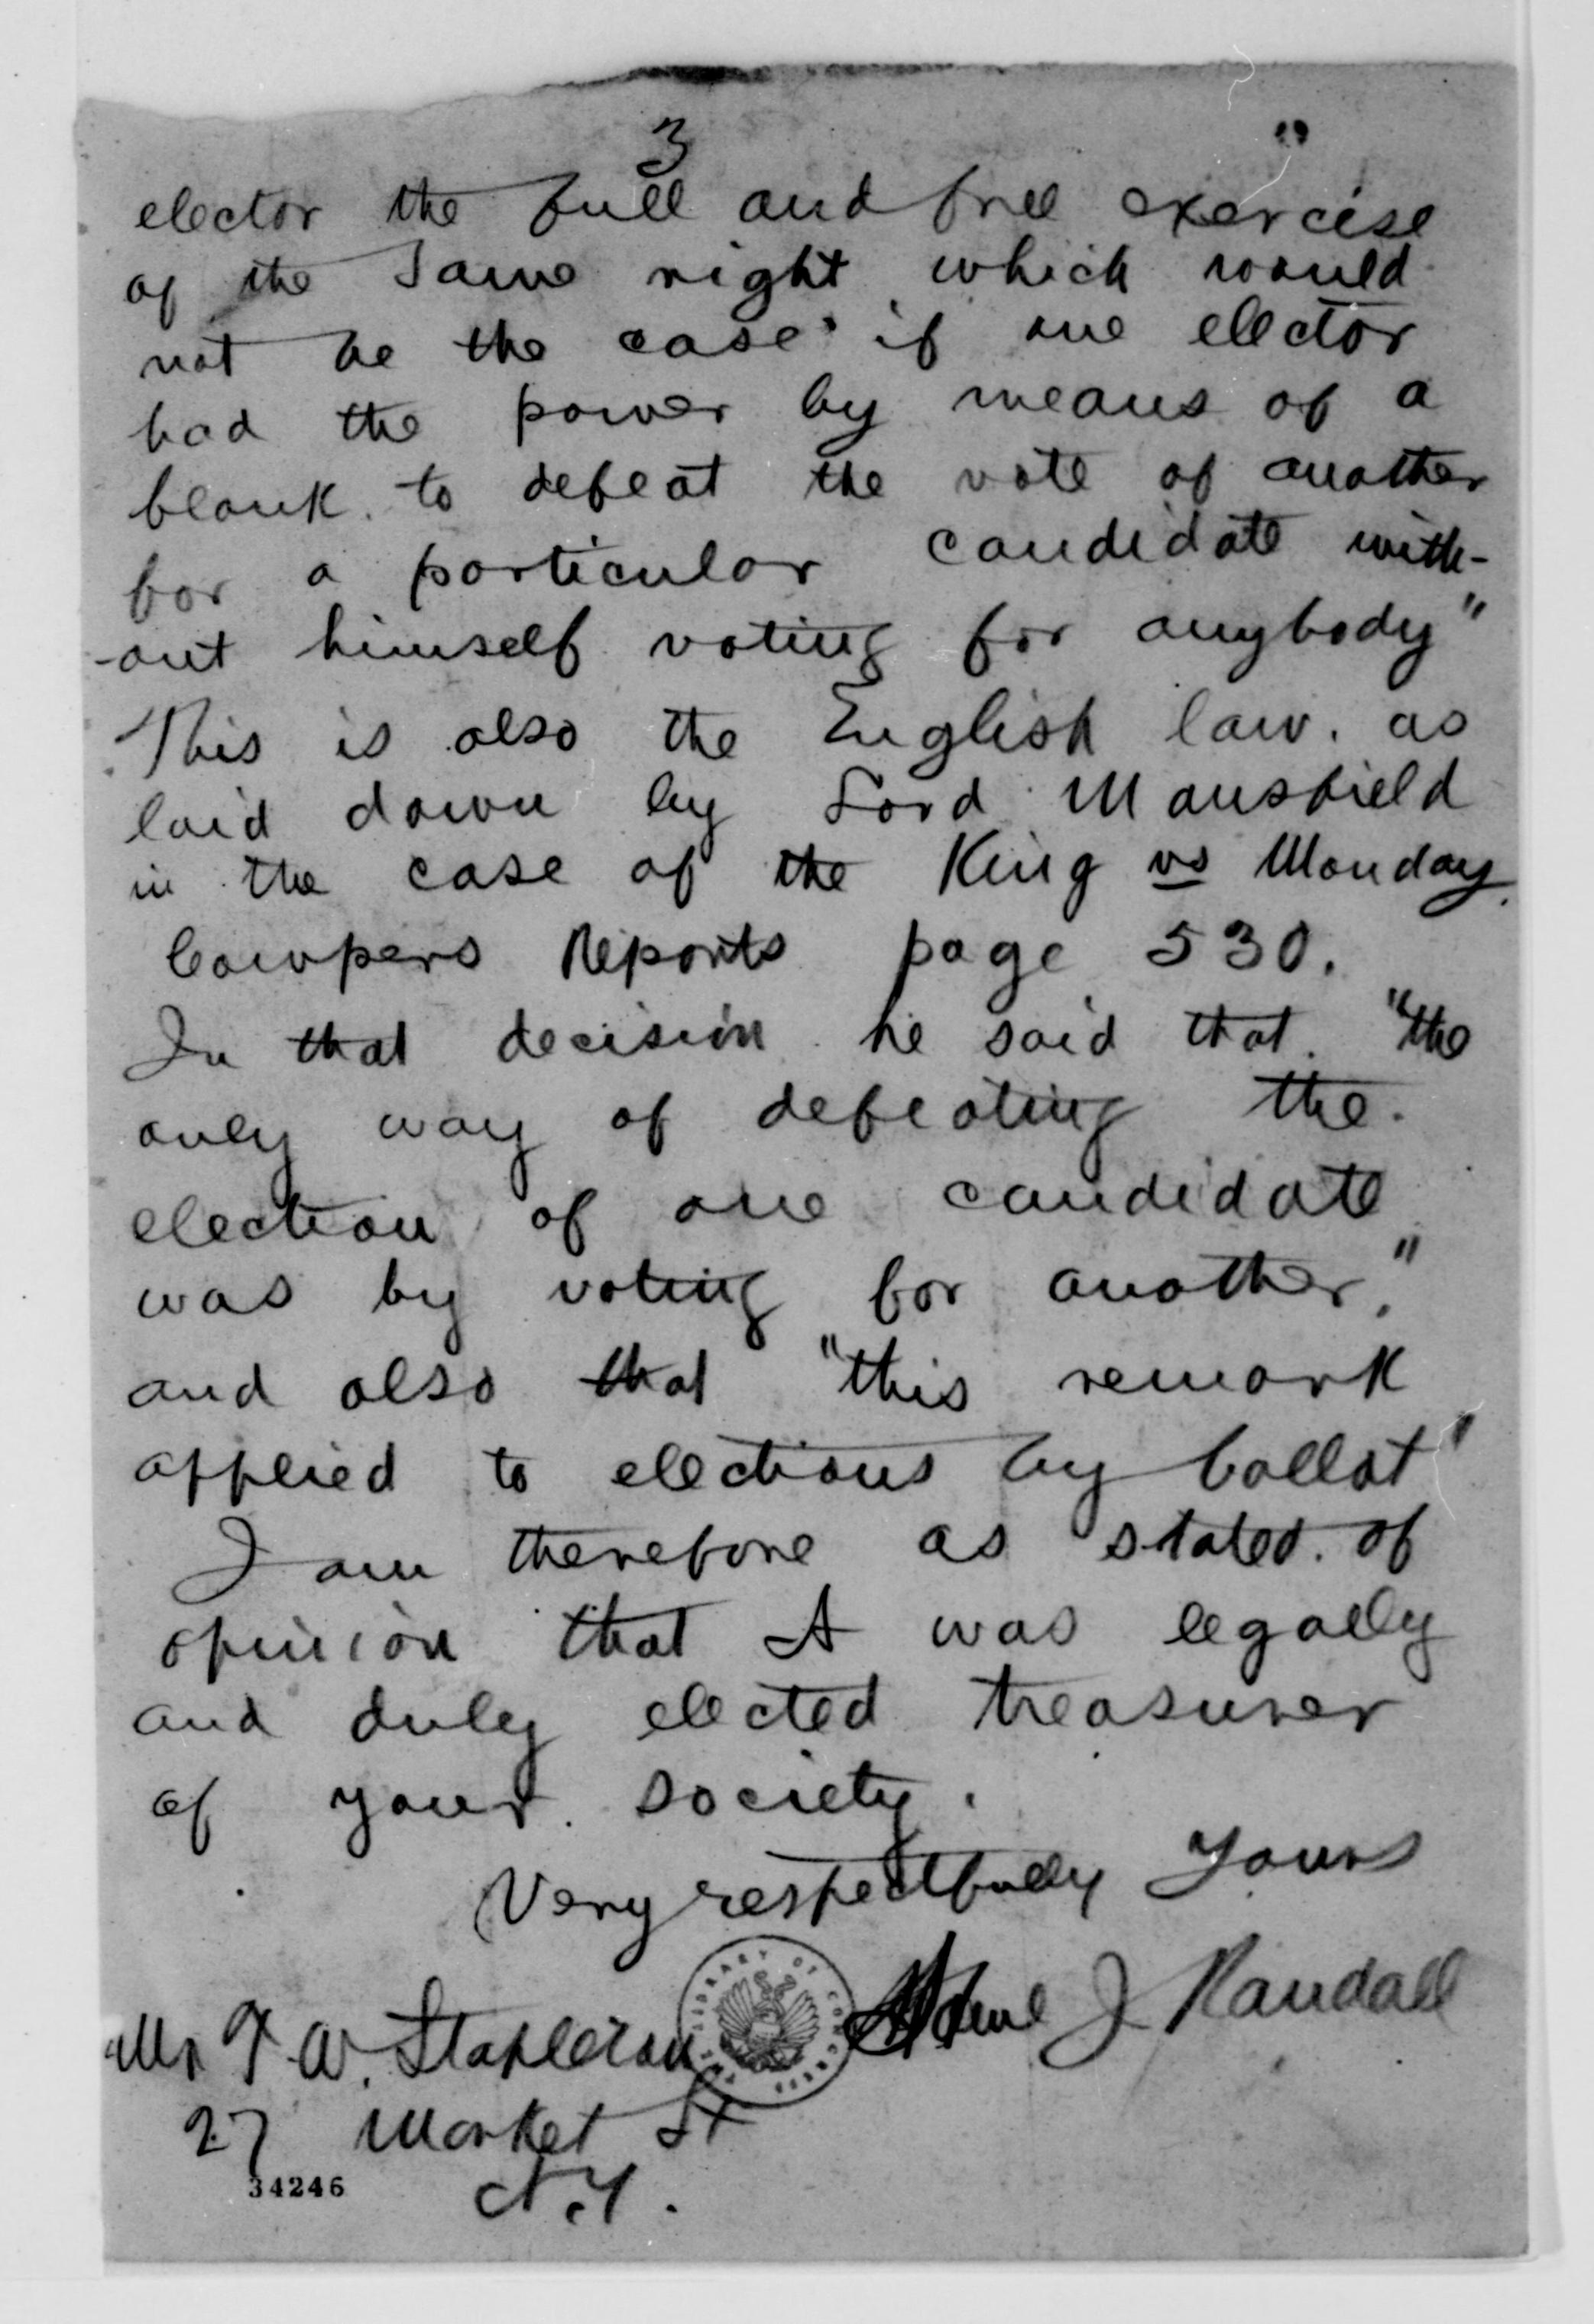 3
elector the full and free exercise
of the same right which would
not be the case if one elector
had the power by means of a
blank. to defeat the vote of another
for a particular candidate with-
-out himself voting for anybody"
This is also the English law. as
laid down by Lord Mansfield
in the case of the King vs Monday.
Cowpers Reports page 530.
In that decision he said that. "the
only way of defeating the
election of one candidate
was by voting for another,"
and also that "this remark
applied to elections by ballot"
I am therefore as stated. of
opinion that A was legally
and duly elected treasurer
of your society.
Very respectfully Yours
J Randall
Mr T. W. Stapleton
27 Market St
N.Y.
34246
LIBRARY OF CONGRESS